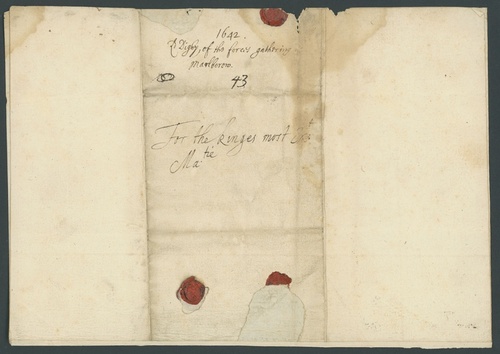 1642.
Ld Digby, of the forces gathering
Marlborow.
43
For the Kinges most
Ma:tie